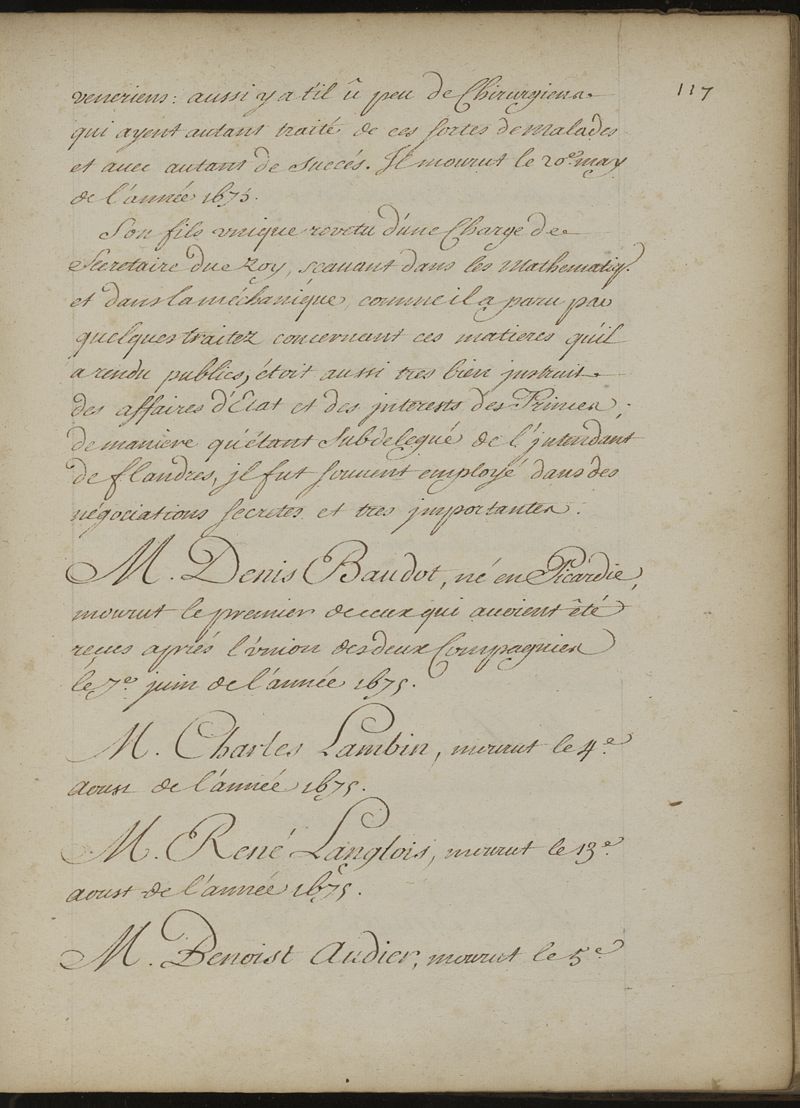 117
veneriens : aussi y a t'il û peu de Chirurgiens
qui ayent autant traité de ces sortes de malades
et avec autant de succés. Il mourut le 20e may
de l'année 1675.
Son fils unique revetu d'une Charge de
Secretaire du Roy, scavant dans les Mathematiq.
et dans la méchanique, comme il a paru par
quelques traitez concernant ces matieres qu'il
a rendu publics, étoit aussi tres bien jnstruit
des affaires d'Etat et des jnterests des Princes ;
de maniere qu'étant Subdelegué de l'jntendant
de flandres, jl fut souvent employé dans des
négociations secretes et tres jmportantes.
M. Denis Baudot, né en Picardie,
mourut le premier de ceux qui avoient été
recus aprés l'vnion des deux Compagnies
le 7e juin de l'année 1675.
M. Charles Lambin, mourut le 4e
aoust de l'année 1675.
M. René Langlois, mourut le 13e
aoust de l'année 1675.
M. Benoist Audier, mourut le 5e